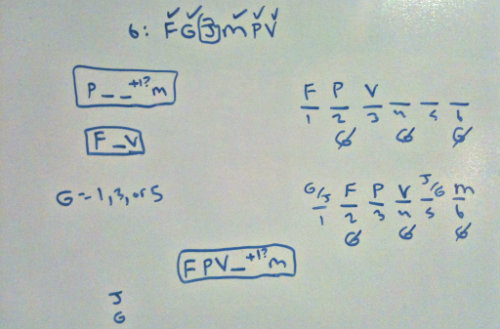 6: F G J m P V
P _ _ +1? m
F _ V
G = 1, 3, or 5
F P V _ _ _
1 2 3 4 5 6
G G G
G/J F P V J/G m
1 2 3 4 5 6
G G G
F P V _ +1? m
J
G